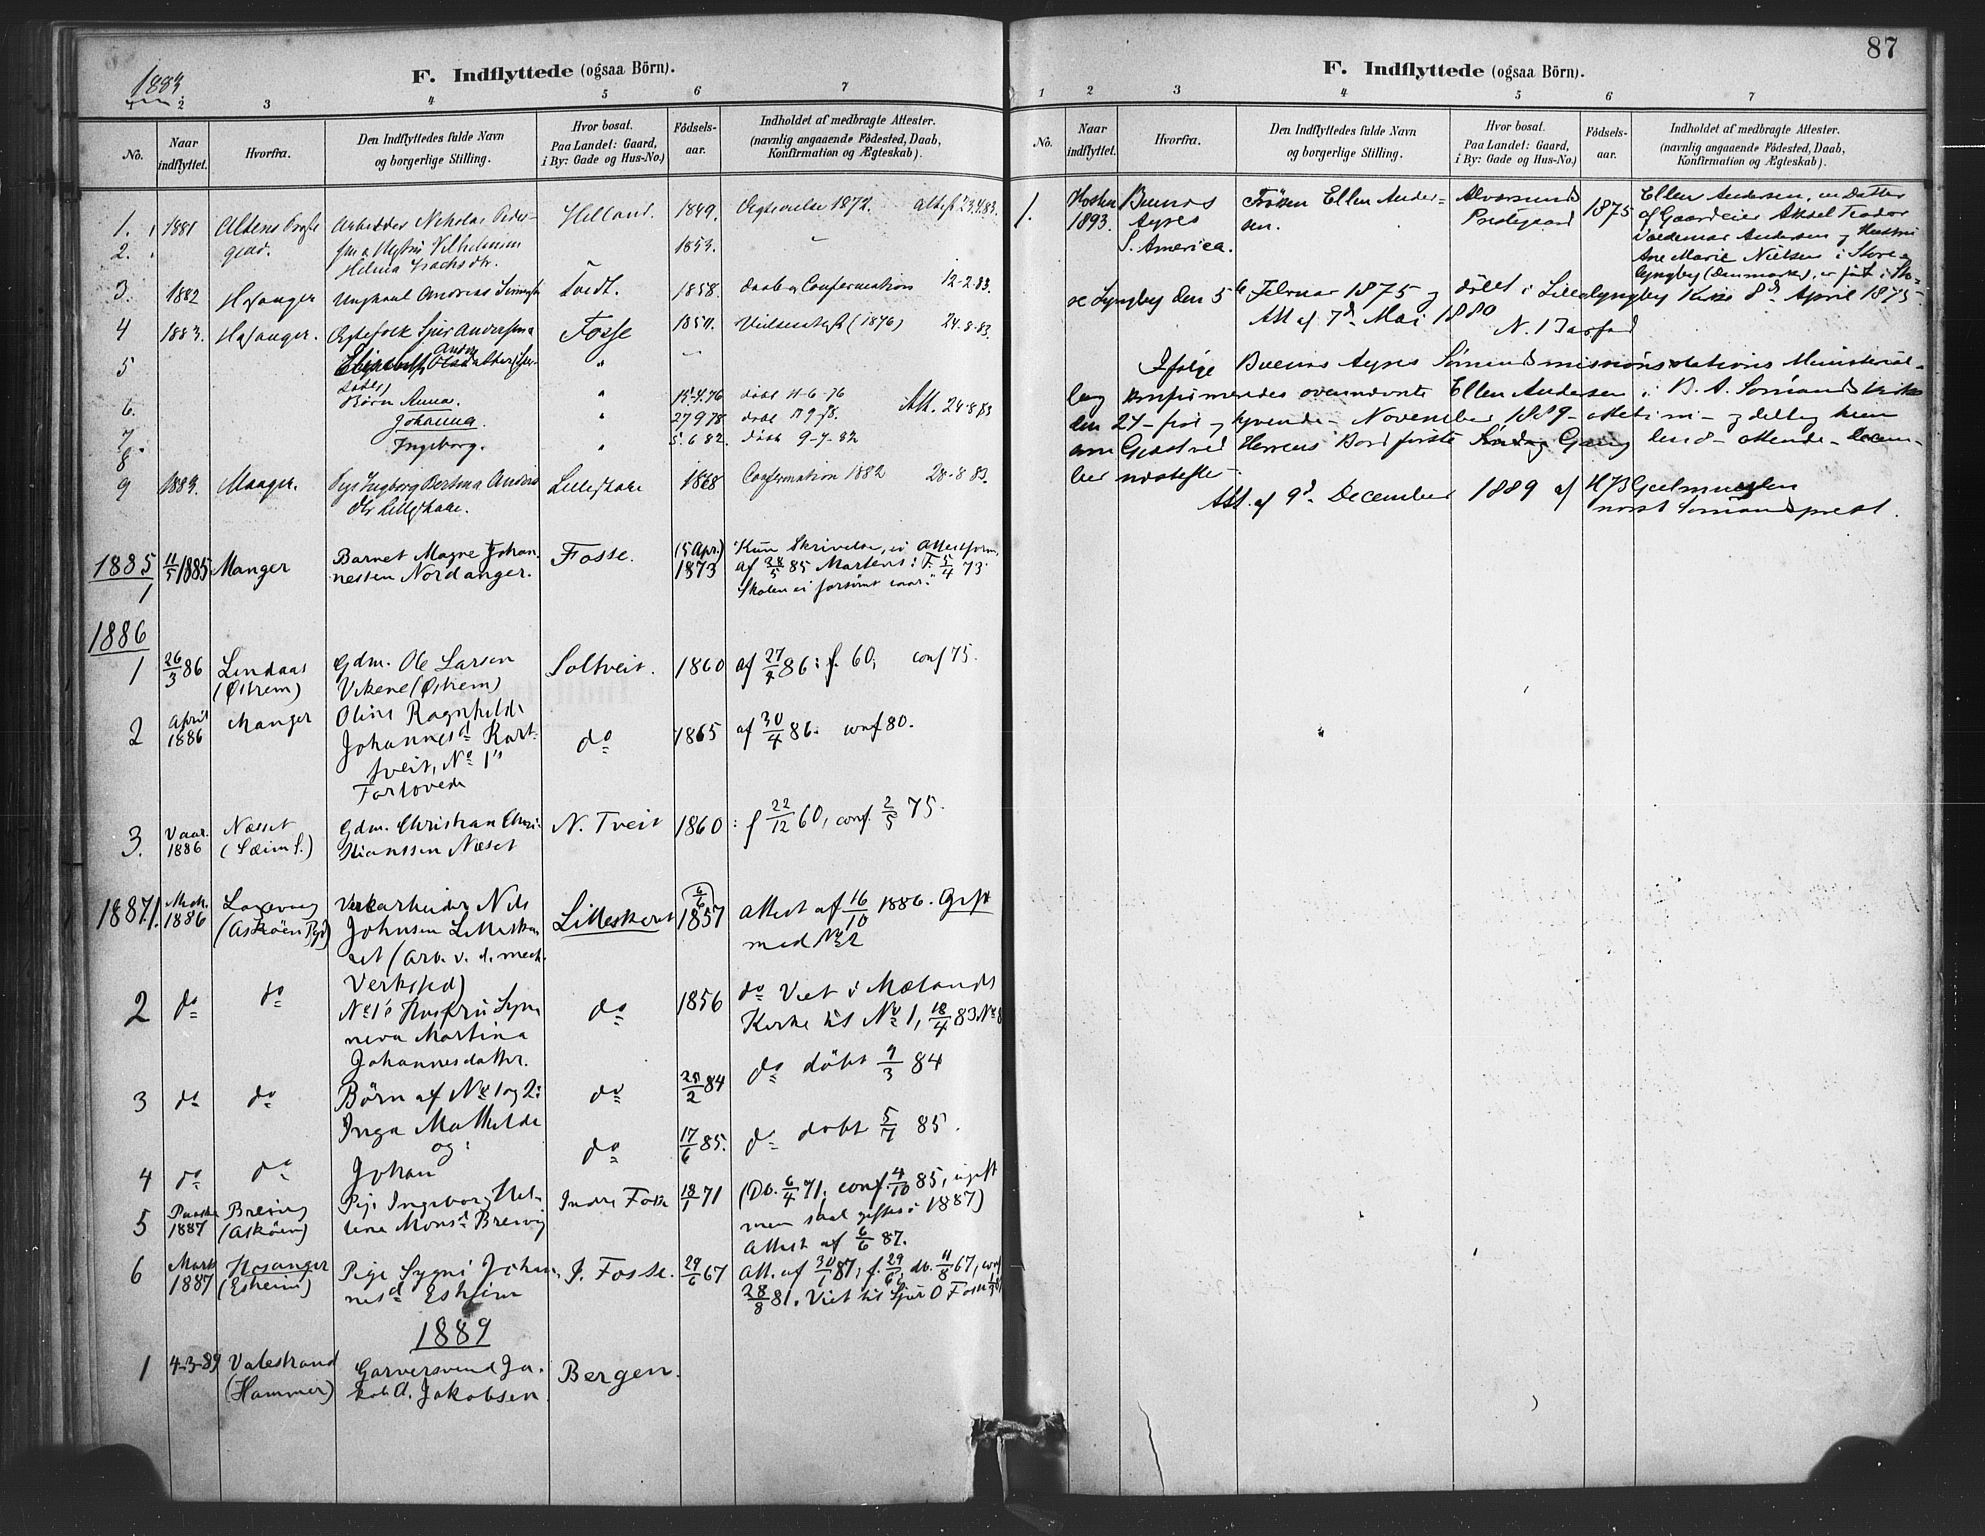 1883
F. Indflyttede (ogsaa Börn).
2 3 4 5 6 7
No.
Naar indflyttet.
Hvorfra.
Den Indflyttedes fulde Navn og borgerlige Stilling.
Hvor bosat. Paa Landet: Gaard, i By: Gade og Hus-No.)
Fødselsaar.
Indholdet af medbragte Attester. (navnlig angaaende Födested, Daab, Konfirmation og Ægteskab).
1. 1881 Arbeider Nikolai Helland. 1849. 1872.
2. 1853.
3. 1882 Hosanger Ungkarl Andreas Tvedt. 1858. Daab og Confirmation 12-2-83.
4 1883. Hosanger. Ægtefolk Sjur Andersen Fosse 1854. (1876) 24-8-83
5 Elisabeth "
6. Børn Anna. " 15-4-76 döbt 11-6-76 Att. 24-8-83
7. Johanna. " 27 9 78
8 Ingeborg. " 5-6 82 döbt 9-7-82
9 1883. Manger. Pige Ingeborg Bertina Anders 1868 Confirmation 1882 28-8 83.
1885
1 11/5 1885 Manger Barnet Magne Johan- Fosse. (5 Apr.) "Kun Skrivelse, ei Attestform,
nessen Nordanger. 1873 af 28/5 85 Martens: F. 5/4 73.
Skolen ei forsømt
1886
1 26/3 86 Lindaas Gdm. Ole Larsen Soltveit. 1860 af 27/4 86: f. 60, conf 75.
(Østrem) Vikene (Østrem)
2 April Manger Oline Ragnhilde
1886 Johannesd Kart- do 1865 af 30/4 86. conf 80.
tveit, No 1's
Forlovede
3. Vaar. Næsset Gdm. Christian Chri- N. Tveit 1860 : f 22/12 60, conf. 2/5 75.
1886 (Sæim s.) stianssen Næset
1887. 1. Mch. Laxevaag Verkarbeider Nils Lilleskaret (6/6)
1886 (Askøen Pgd) Johnsen Lilleska- 1857 Attest af 16/10 1886. Gift
ret (Arb. v. d. mech. med No 2
Verksted)
2 do do No 1's Hustru Syn- do 1856 do Viet i Mælands
neva Martina Kirke til No 1, 18/4 83 No 8
Johannesdatter.
3 do do Børn af No 1 og 2: do 25/2 84 do döbt 9/3 84
Inga Mathilde
og: do 17/6 85. do döbt 5/7 85.
4 do do Johan
5 Paaske Breivig Pige Ingeborg Hel- Indre Fosse 18/1 71 (Db. 6/4 71, conf. 4/10 85, ugift
1887 (Askøen) line Monsd Breivig men skal giftes i 1887)
Attest af 6/6 87.
6 Marts Hosanger Pige Sygni Johan- I. Fosse. 29/6 67 Att. af 30/1 87, f. 29/6, db. 11/8 67, conf
1887 (Esheim) nesd Esheim 28/8 81. Viet til Sjur O Fosse
1889
1 4-3-89 Valestrand Garversvend Ja- Bergen.
(Hammer) kob A. Jakobsen.
87
F. Indflyttede (ogsaa Börn).
1 2 3 4 5 6 7
No.
Naar indflyttet.
Hvorfra.
Den Indflyttedes fulde Navn og borgerlige Stilling.
Hvor bosat. Paa Landet: Gaard, i By: Gade og Hus-No.)
Fødselsaar.
Indholdet af medbragte Attester. (navnlig angaaende Födested, Daab, Konfirmation og Ægteskab).
1. Høsten Buenos Frøken Ellen Ander- Alversund 1875 Ellen Andersen, en Datter
1893. Ayres sen. Prestegaard af Gaardeier Aksel Teodor
S. America. Valdemar Andersen og Hustru
Ane Marie Nielsen i Store
Lyngby (Denmark), er født i Sto-
re Lyngby den 5te Februar 1875 og döbt i Lillelyngby Kirke 8d April 1875-
Att af 7d Mai 1880
N.
Ifølge Buenos Ayres Sømandsmissionsstations Ministerial-
bog konfirmeredes ovennævnte Ellen Andersen i B. A. Sømandskirke
den 24 - fire og tyvende - November 1889 - otteti ni - og deltog
Gang ved Herrens Bord første Søndag den 8 - ottende - Decem-
ber næstefter -
Att. af 9d December 1889 af
norsk Sømandsprest.